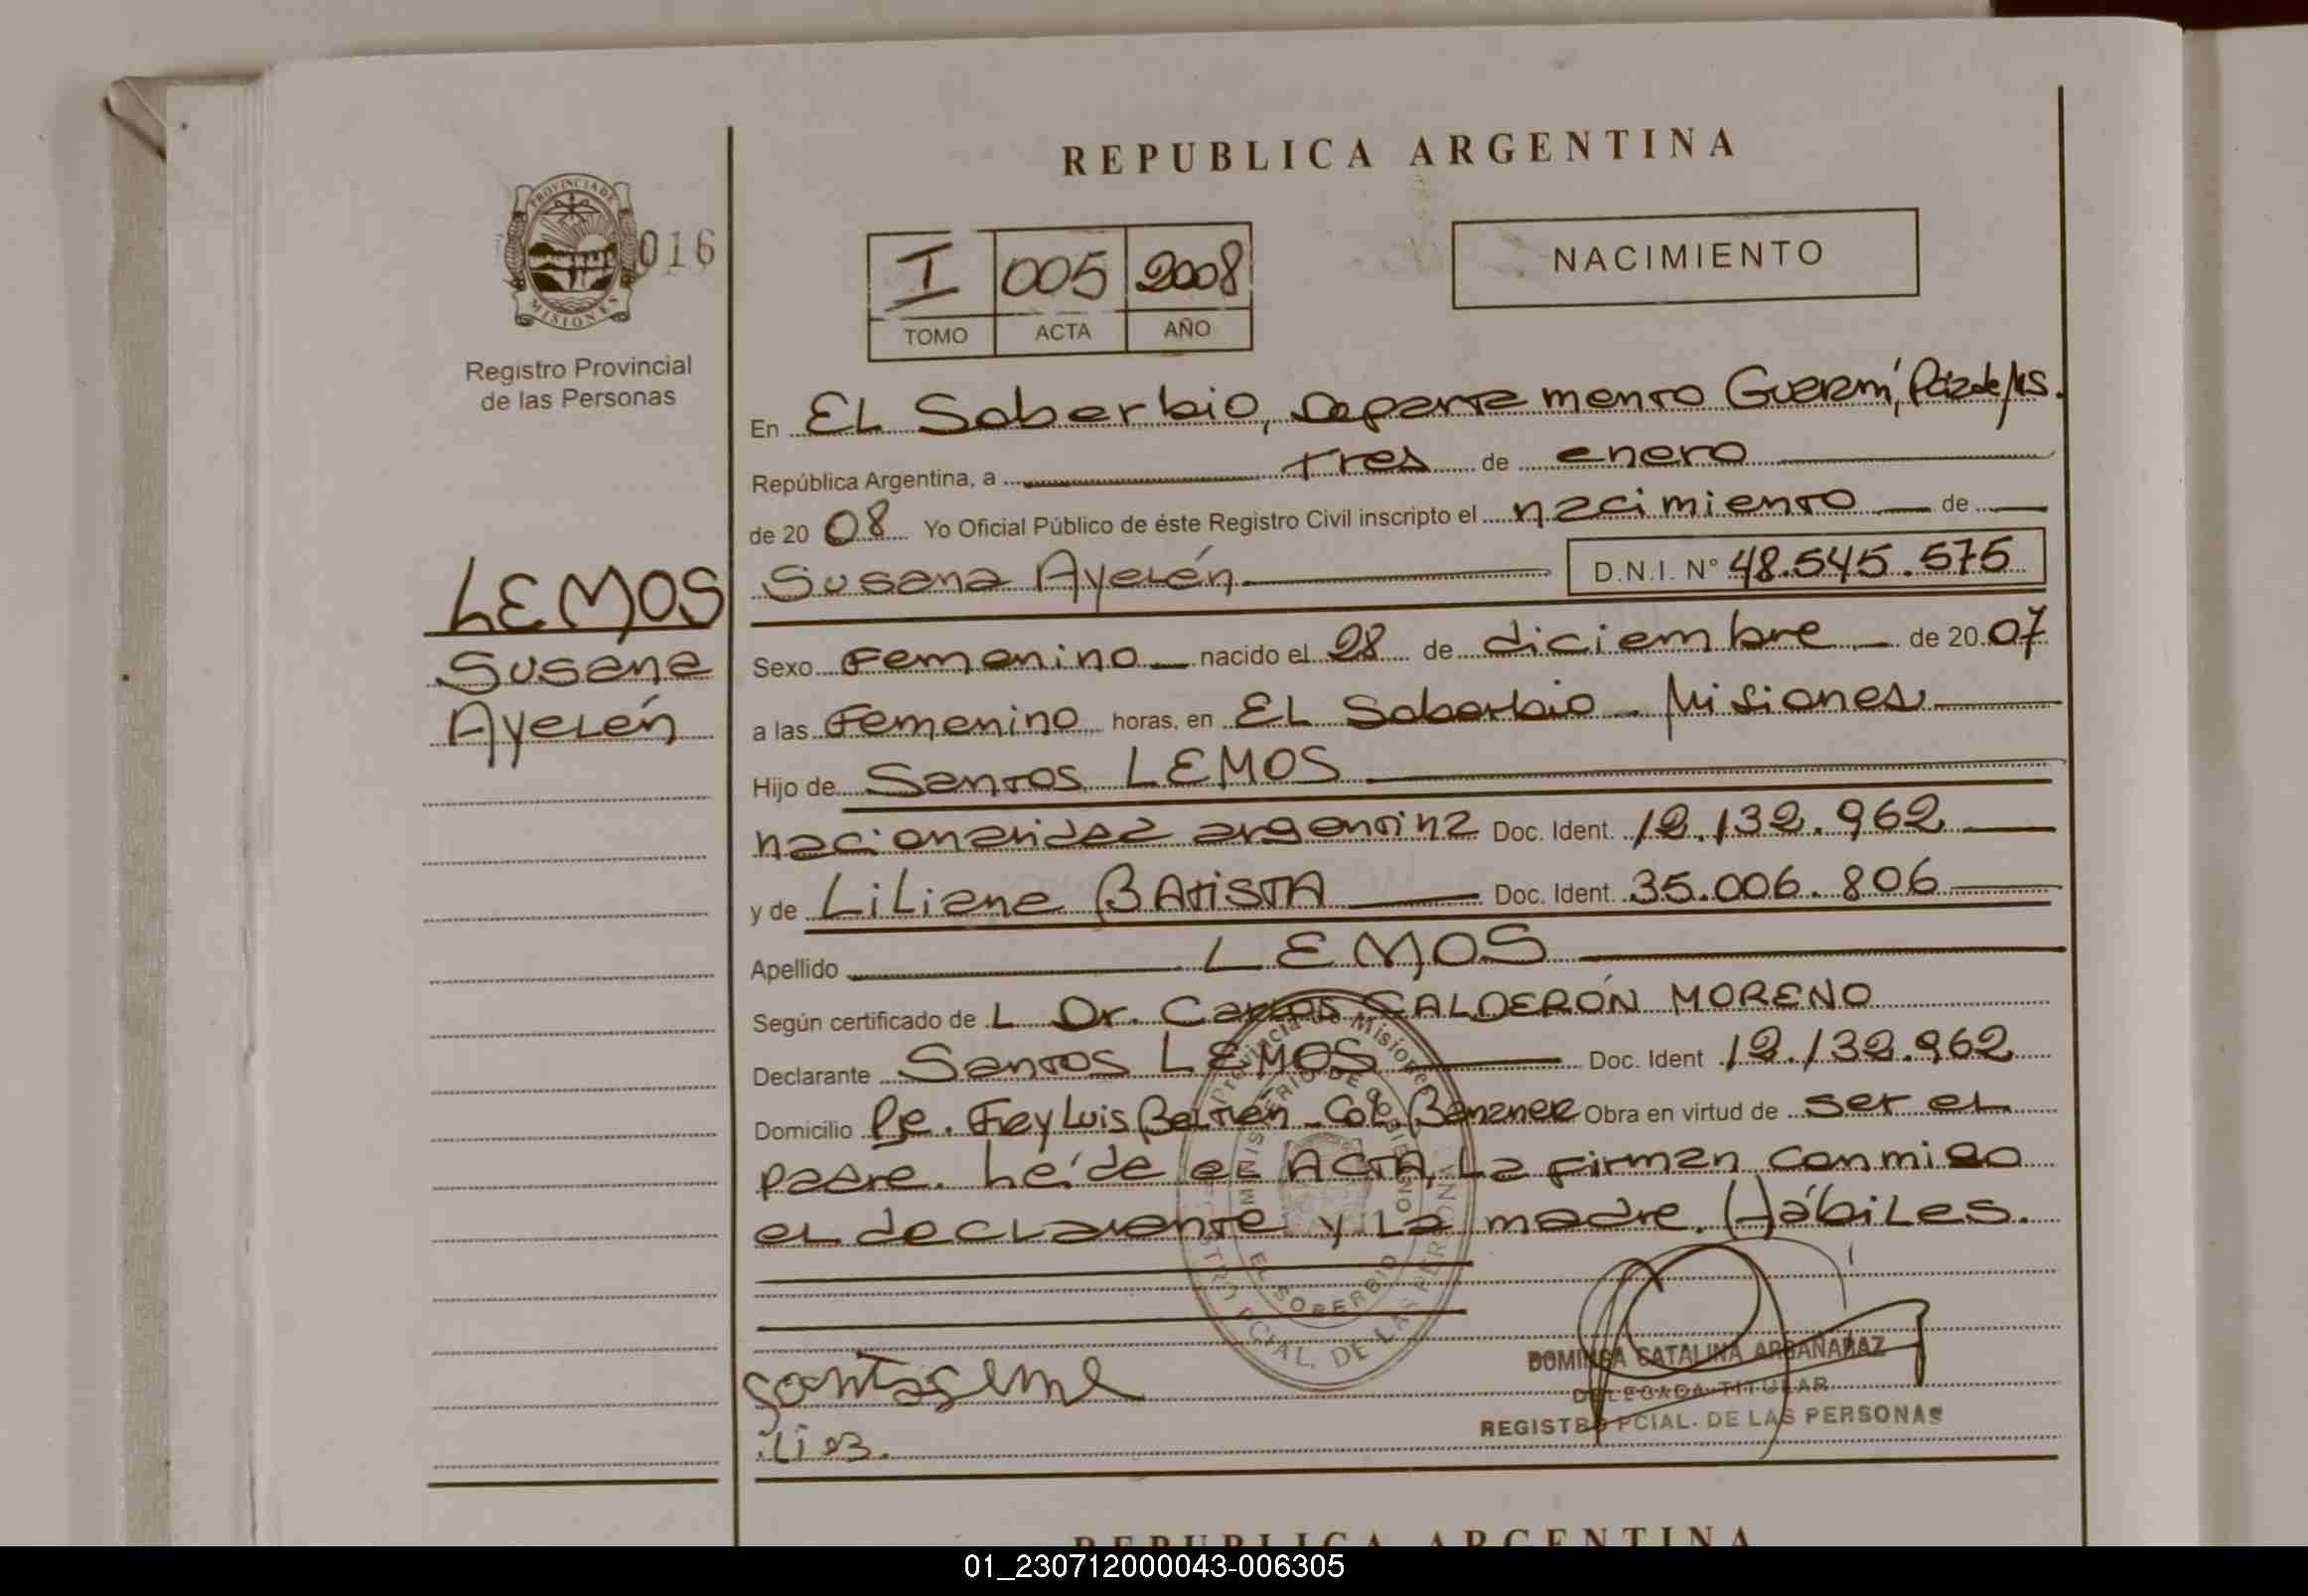 REPUBLICA ARGENTINA
PROVINCIA DE
MISIONES
016
Registro Provincial
de las Personas
I 005 2008
TOMO ACTA AÑO
NACIMIENTO
En EL Soberbio, Departamento Guaraní, Pcia de Ms.
República Argentina, a tres de enero
de 20 08 Yo Oficial Público de éste Registro Civil inscripto el nacimiento de
Susana Ayelén D.N.I. N° 48.545.575
LEMOS
Susana
Ayelén
Sexo Femenino nacido el 28 de diciembre de 20 07
a las Femenino horas, en EL Soberbio - Misiones
Hijo de Santos LEMOS
nacionalidad argentina Doc. Ident. 12.132.962
y de Liliana BATISTA Doc. Ident. 35.006.806
Apellido LEMOS
Según certificado de L Dr. Carlos CALDERÓN MORENO
Declarante Santos LEMOS Doc. Ident 12.132.962
Domicilio Pje. Fray Luis Beltrán - Col. Bananera Obra en virtud de ser el
padre. Leída el ACTA, La firman conmigo
el declarante y La madre. Hábiles.
Provincia de Misiones
MINISTERIO DE GOBIERNO
EL SOBERBIO
DE LAS PERSONAS
DOMINGA CATALINA ARGAÑARAZ
DELEGADA TITULAR
REGISTRO PCIAL. DE LAS PERSONAS
REPUBLICA ARGENTINA
01_230712000043-006305